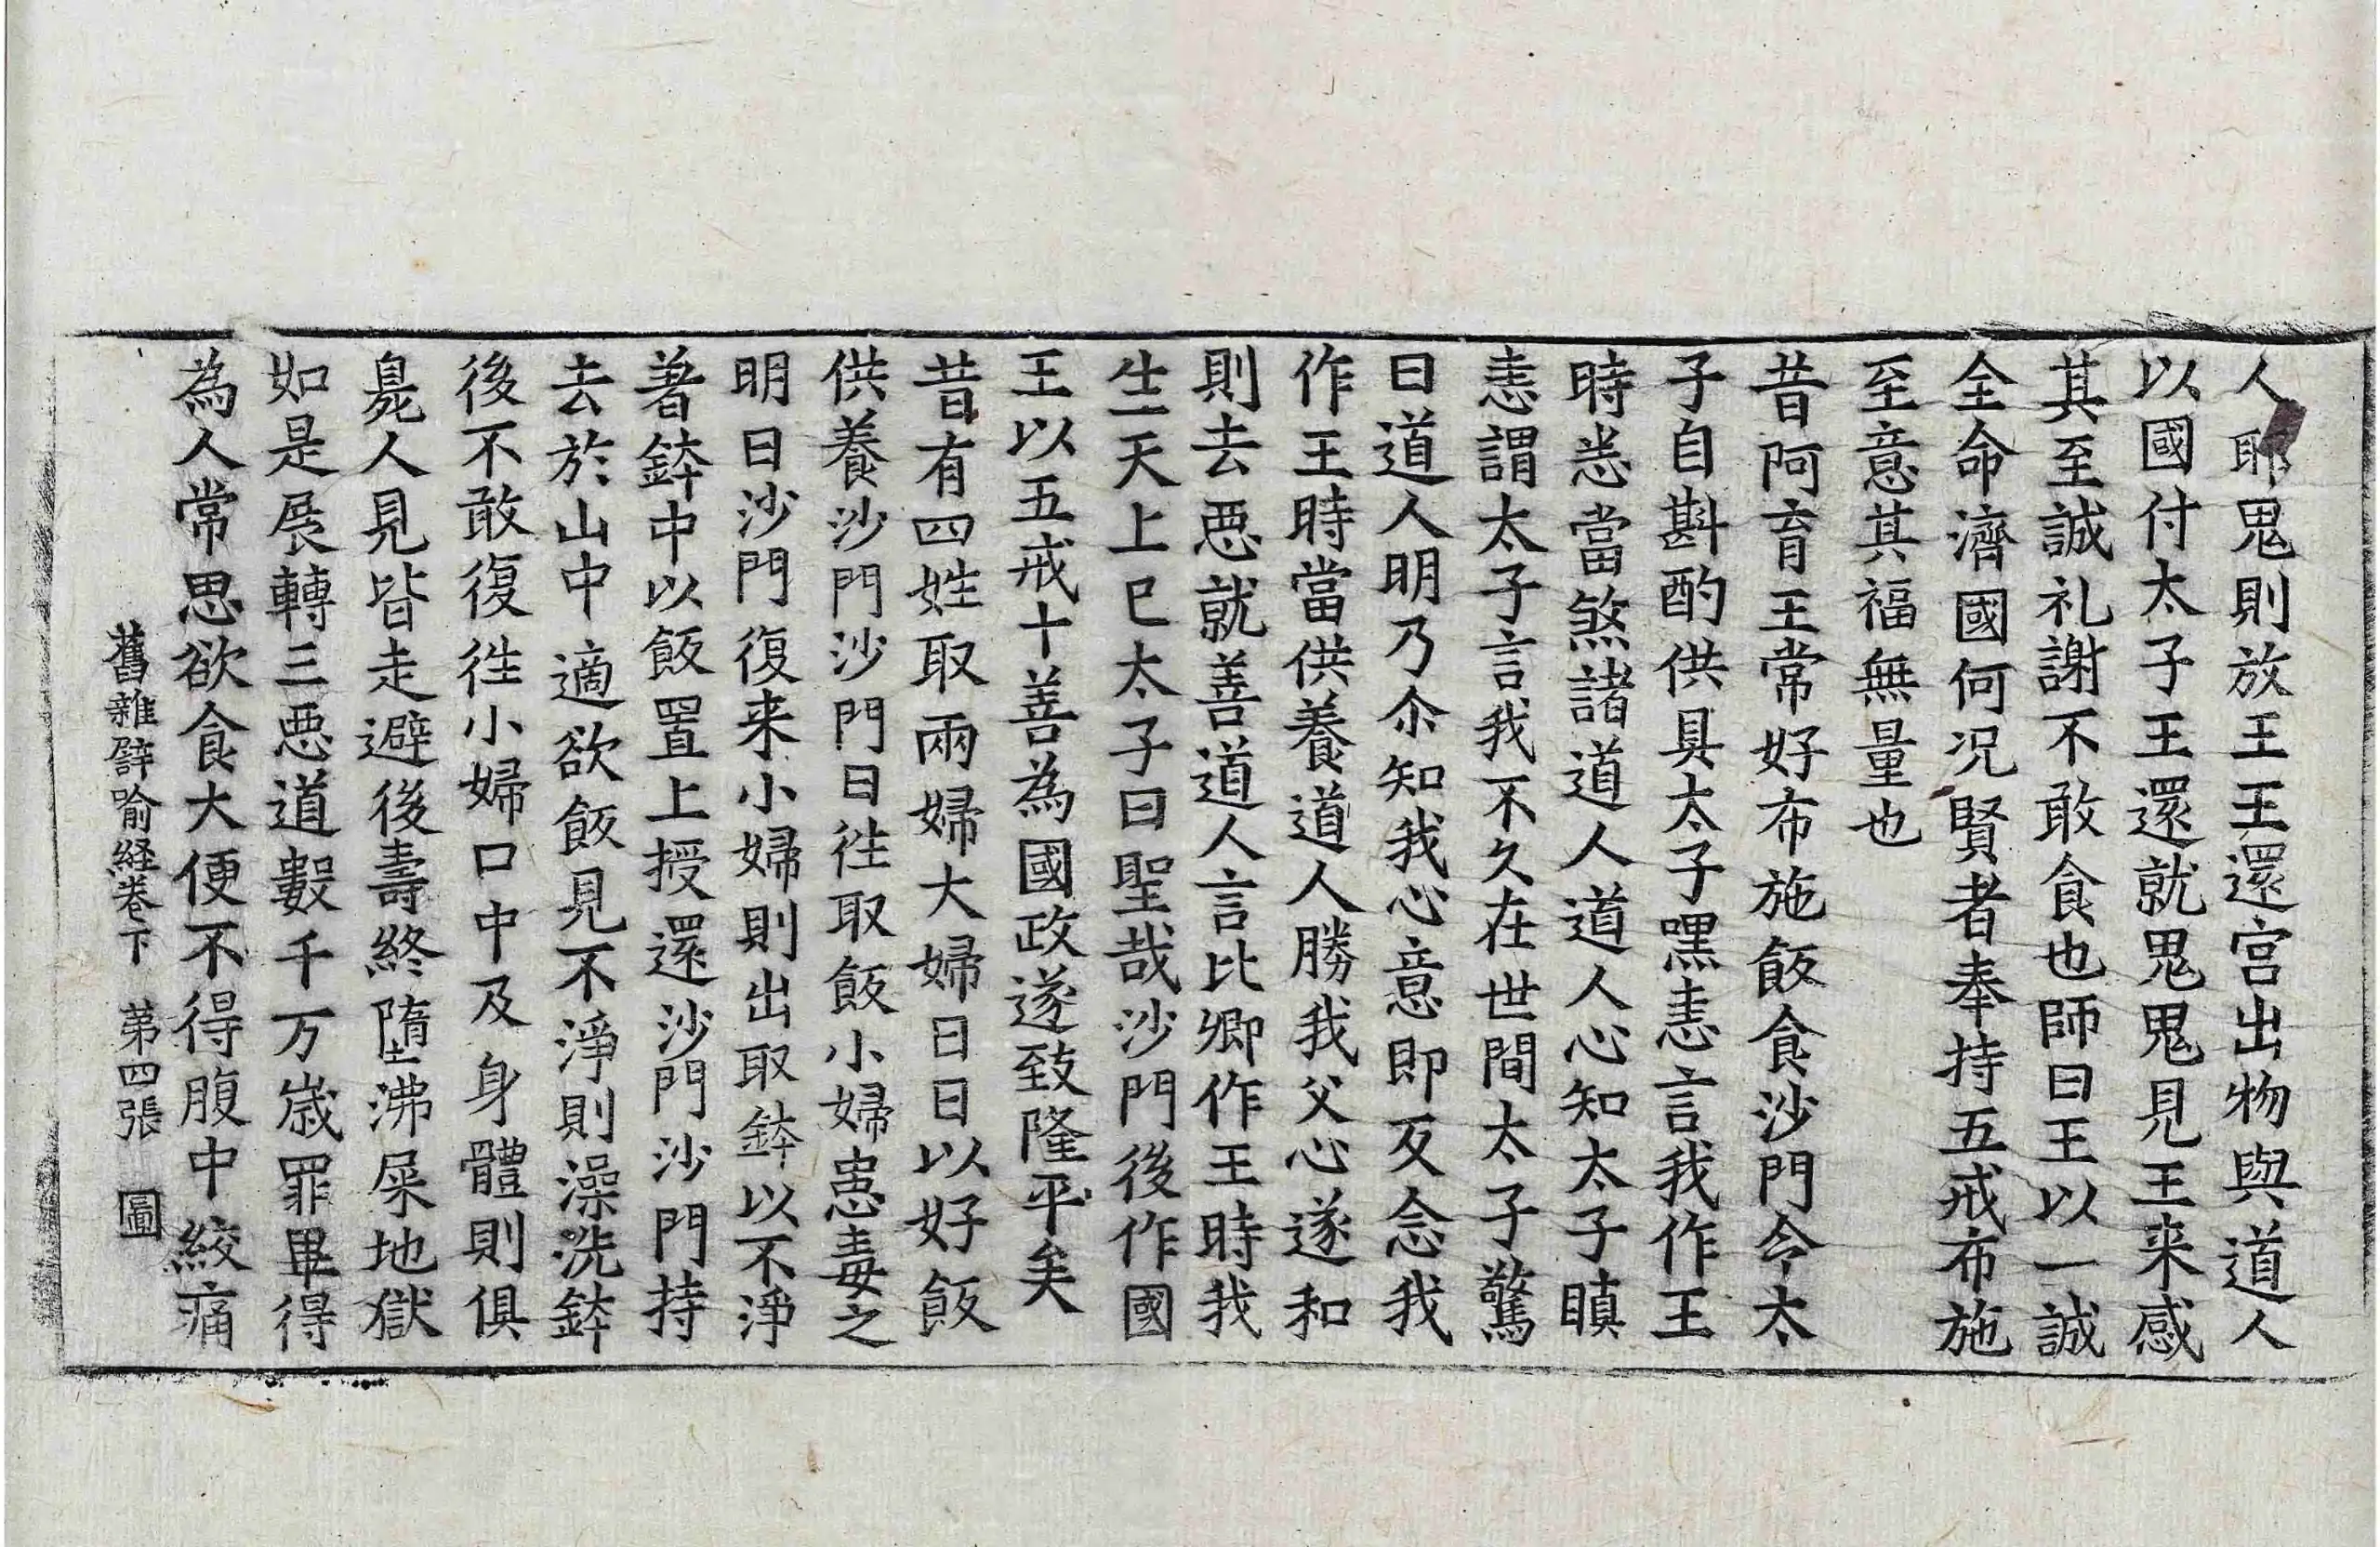 人耶鬼則放王王還宮出物與道人
以國付太子王還就鬼鬼見王来感
其至誠礼謝不敢食也師曰王以一誠
全命濟國何况賢者奉持五戒布施
至意其福無量也
昔阿育王常好布施飯食沙門令太
子自斟酌供具太子嘿恚言我作王
時悉當煞諸道人道人心知太子瞋
恚謂太子言我不久在世間太子驚
曰道人明乃尒知我心意即反念我
作王時當供養道人勝我父心遂和
則去惡就善道人言比卿作王時我
生天上巳太子曰聖哉沙門後作國
王以五戒十善為國政遂致隆平矣
昔有四姓取兩婦大婦日日以好飯
供養沙門沙門日往取飯小婦患毒之
明日沙門復来小婦則出取鉢以不淨
著鉢中以飯置上授還沙門沙門持
去於山中適欲飯見不淨則澡洗鉢
後不敢復往小婦口中及身體則俱
臰人見皆走避後壽終墮沸屎地獄
如是展轉三惡道數千万歲罪畢得
為人常思欲食大便不得腹中絞痛
舊雜譬喻経卷下 第四張 圖